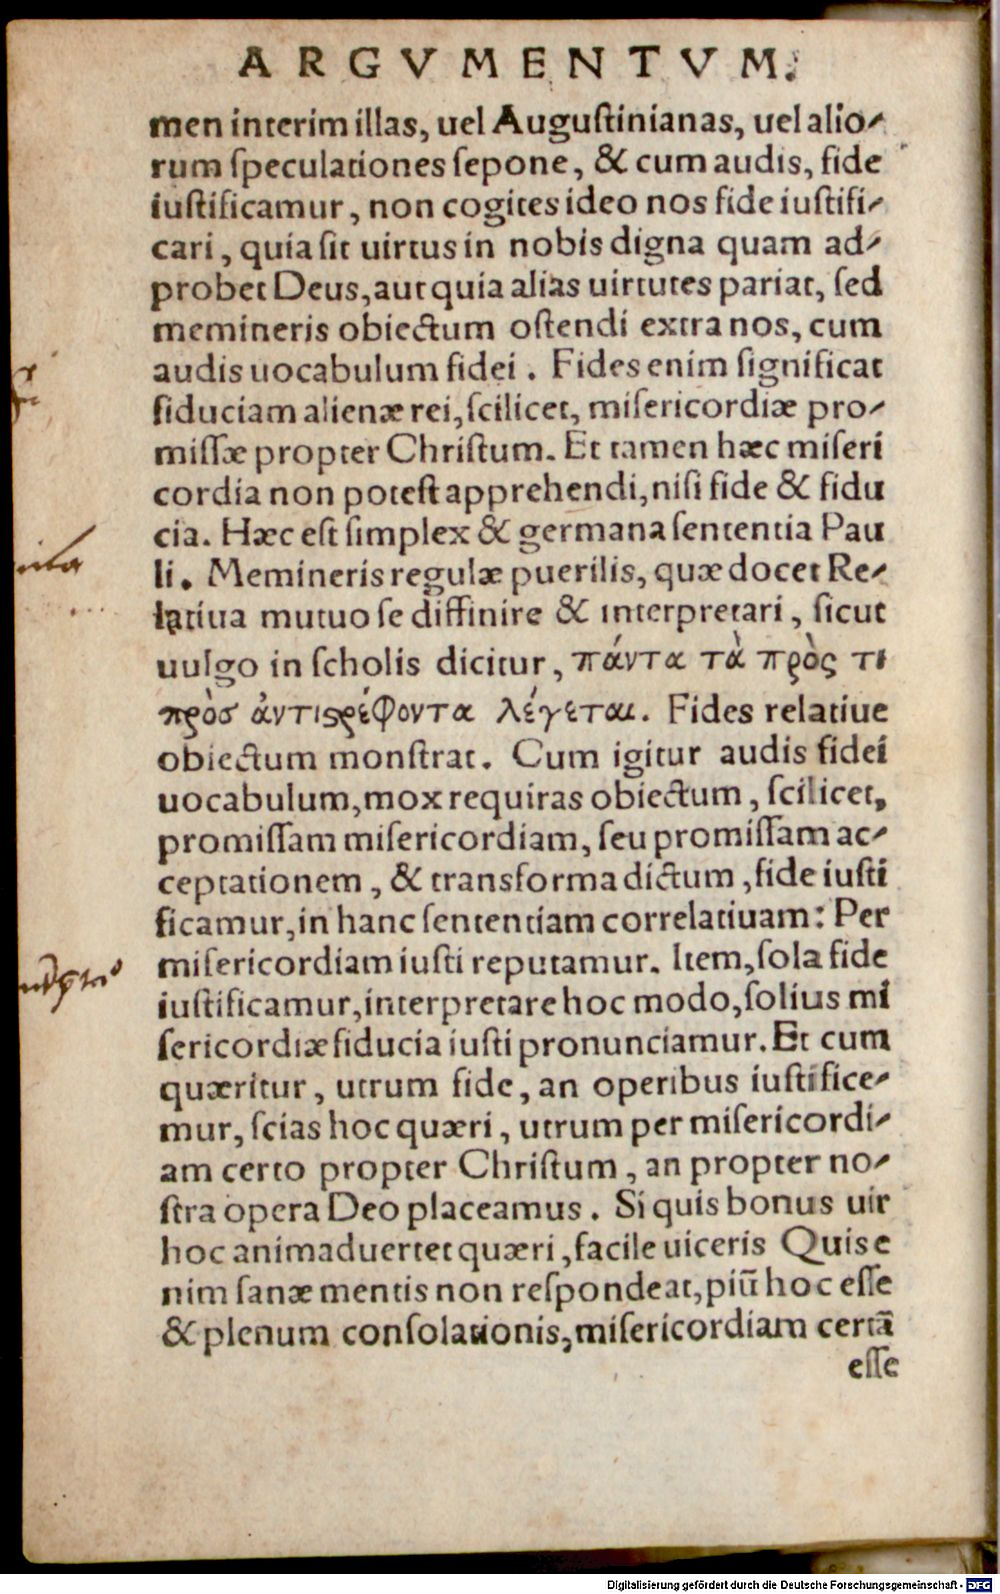 ARGVMENTVM.
men interim illas, uel Auguſtinianas, uel alio-
rum ſpeculationes ſepone, & cum audis, fide
iuſtificamur, non cogites ideo nos fide iuſtifi-
cari, quia ſit uirtus in nobis digna quam ad-
probet Deus, aut quia alias uirtutes pariat, ſed
memineris obiectum oſtendi extra nos, cum
audis uocabulum fidei. Fides enim ſignificat
fiduciam alienæ rei, ſcilicet, miſericordiæ pro-
miſſæ propter Chriſtum. Et tamen hæc miſeri
cordia non poteſt apprehendi, niſi fide & fidu
cia. Hæc eſt ſimplex & germana ſententia Pau
li. Memineris regulæ puerilis, quæ docet Re-
latiua mutuo ſe diffinire & interpretari, ſicut
uulgo in ſcholis dicitur, πάντα τὰ πρὸς τι
πρὸσ ἀντιςρέφοντα λέγεται. Fides relatiue
obiectum monſtrat. Cum igitur audis fidei
uocabulum, mox requiras obiectum, ſcilicet,
promiſſam miſericordiam, ſeu promiſſam ac-
ceptationem, & transforma dictum, fide iuſti
ficamur, in hanc ſententiam correlatiuam: Per
miſericordiam iuſti reputamur. Item, ſola fide
iuſtificamur, interpretare hoc modo, ſolius mi
ſericordiæ fiducia iuſti pronunciamur. Et cum
quæritur, utrum fide, an operibus iuſtifice-
mur, ſcias hoc quæri, utrum per miſericordi-
am certo propter Chriſtum, an propter no-
ſtra opera Deo placeamus. Si quis bonus uir
hoc animaduertet quæri, facile uiceris Quis e
nim ſanæ mentis non reſpondeat, piū hoc eſſe
& plenum conſolationis, miſericordiam certā
eſſe
Digitalisierung gefördert durch die Deutsche Forschungsgemeinschaft - DFG